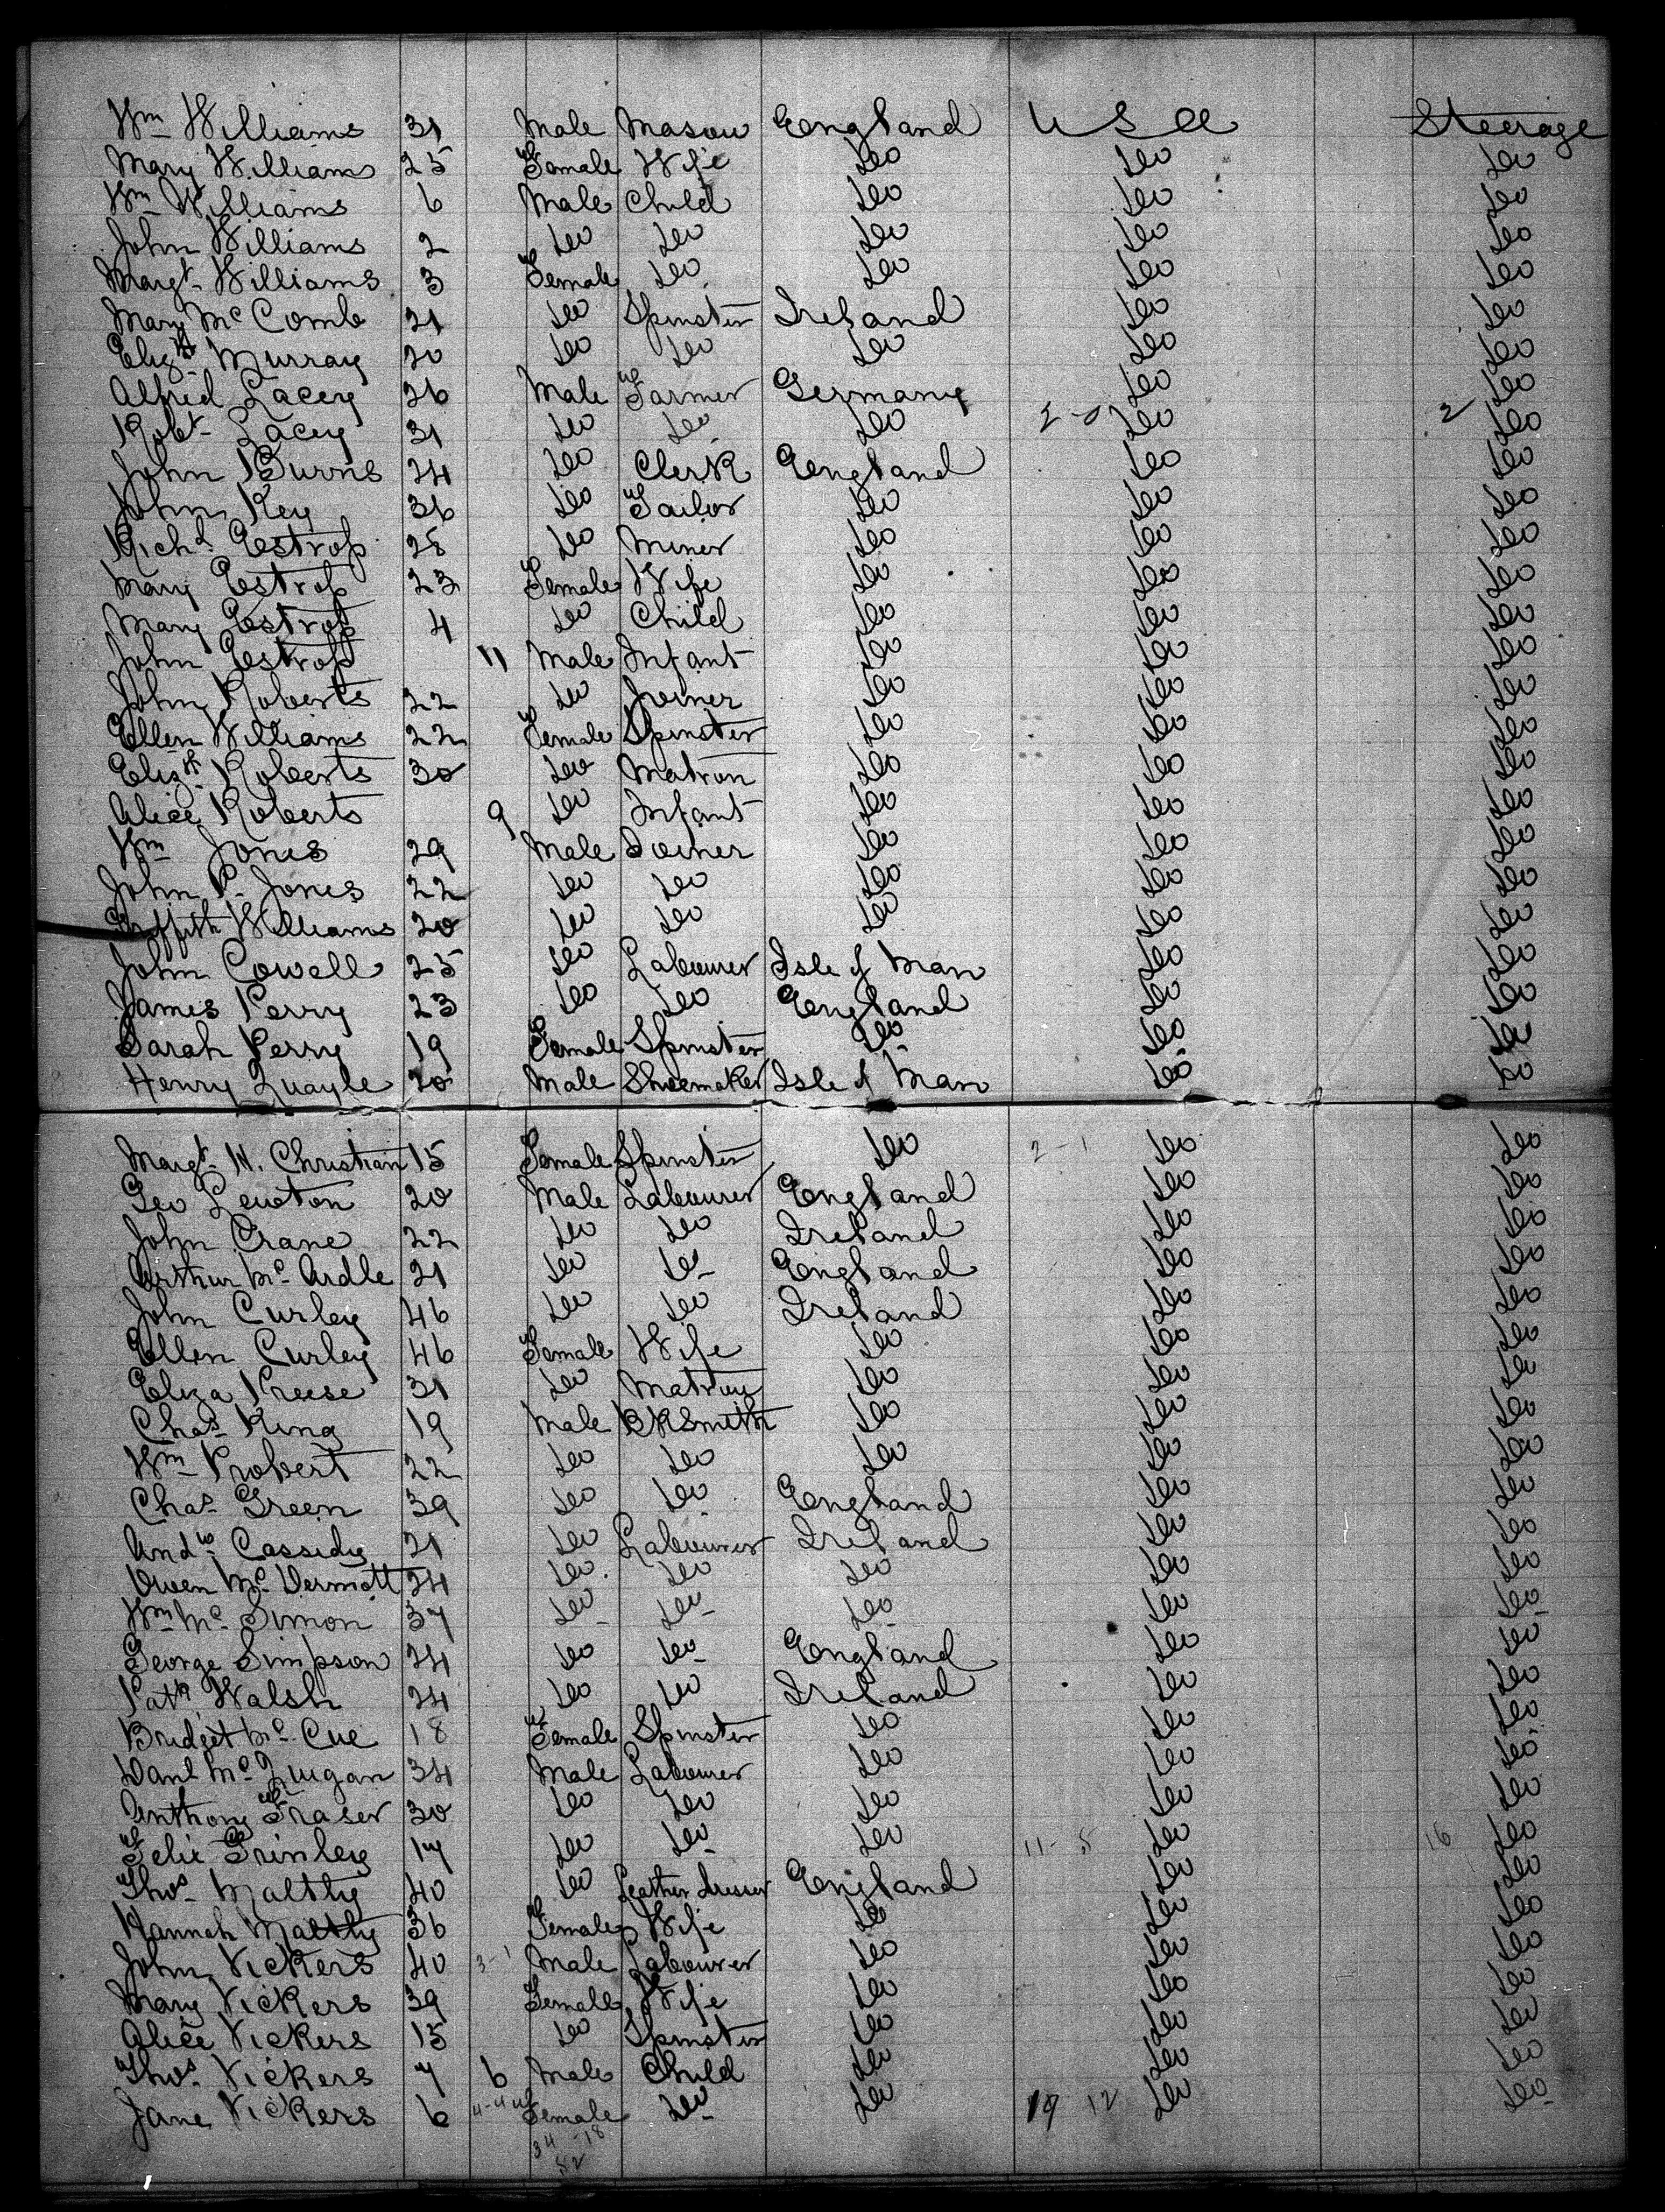 Wm Williams 31 Male Mason England U S A Steerage
Mary Williams 25 Female Wife Do Do Do
Wm Williams 6 Male Child Do Do Do
John Williams 2 Do Do Do Do Do
Margt Williams 3 Female Do Do Do Do
Mary McComb 21 Do Spinster Ireland Do Do
Elizth Murray 20 Do Do Do Do Do
Alfred Lacey 26 Male Farmer Germany Do Do
Robt Lacey 31 Do Do Do 2-0 Do 2 Do
John Burns 24 Do Clerk England Do Do
John Key 36 Do Tailor Do Do Do
Richd Estrop 28 Do Miner Do Do Do
Mary Estrop 23 Female Wife Do Do Do
Mary Estrop 4 Do Child Do Do Do
John Estrop 11 Male Infant Do Do Do
John Roberts 22 Do Joiner Do Do Do
Ellen Williams 22 Female Spinster Do Do Do
Elizth Roberts 30 Do Matron Do Do Do
Alice Roberts 9 Do Infant Do Do Do
Wm Jones 29 Male Joiner Do Do Do
John P. Jones 22 Do Do Do Do Do
Griffith Williams 20 Do Do Do Do Do
John Cowell 25 Do Labourer Isle of Man Do Do
James Perry 23 Do Do England Do Do
Sarah Perry 19 Female Spinster Do Do Do
Henry Quayle 20 Male Shoemaker Isle of Man Do Do
Margt W. Christian 15 Female Spinster Do 2-1 Do Do
Geo Lewton 20 Male Labourer England Do Do
John Crane 22 Do Do Ireland Do Do
Arthur McArdle 21 Do Do England Do Do
John Curley 46 Do Do Ireland Do Do
Ellen Curley 46 Female Wife Do Do Do
Eliza Preese 31 Do Matron Do Do Do
Chas King 19 Male BKSmith Do Do Do
Wm Probert 22 Do Do Do Do Do
Chas Green 39 Do Do England Do Do
Andw Cassidy 21 Do Labourer Ireland Do Do
Owen McDermott 24 Do Do Do Do Do
Wm McSimon 37 Do Do Do Do Do
George Simpson 24 Do Do England Do Do
Patk Walsh 24 Do Do Ireland Do Do
Bridget McCue 18 Female Spinster Do Do Do
Danl McGuigan 34 Male Labourer Do Do Do
Anthony Fraser 30 Do Do Do Do Do
Felix Grinley 17 Do Do Do 11-5 Do 16 Do
Thos Maltby 40 Do Leather dresser England Do Do
Hannah Maltby 36 Female Wife Do Do Do
John Vickers 40 3-1 Male Labourer Do Do Do
Mary Vickers 39 Female Wife Do Do Do
Alice Vickers 15 Do Spinster Do Do Do
Thos Vickers 7 6 Male Child Do Do Do
Jane Vickers 6 4-4 Female Do Do 19 12 Do Do
34-18
52